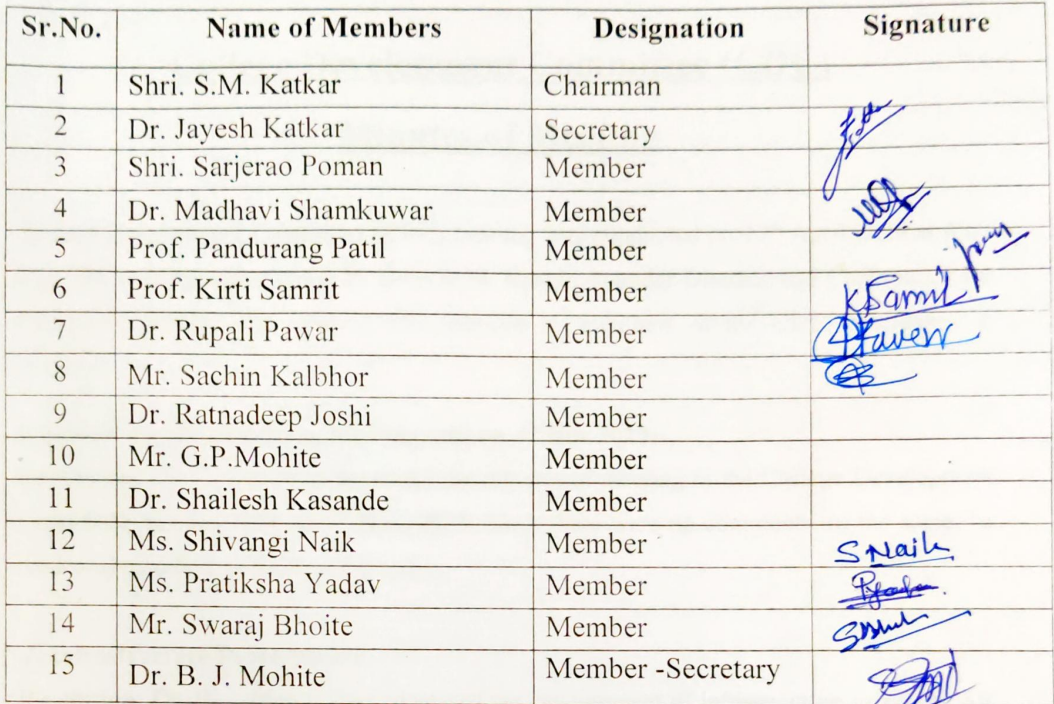 Sr.No. Name of Members Designation Signature
1 Shri. S.M. Katkar Chairman
2 Dr. Jayesh Katkar Secretary
3 Shri. Sarjerao Poman Member
4 Dr. Madhavi Shamkuwar Member
5 Prof. Pandurang Patil Member
6 Prof. Kirti Samrit Member KSamrit
7 Dr. Rupali Pawar Member
8 Mr. Sachin Kalbhor Member
9 Dr. Ratnadeep Joshi Member
10 Mr. G.P.Mohite Member
11 Dr. Shailesh Kasande Member
12 Ms. Shivangi Naik Member SNaik
13 Ms. Pratiksha Yadav Member
14 Mr. Swaraj Bhoite Member
15 Dr. B. J. Mohite Member -Secretary